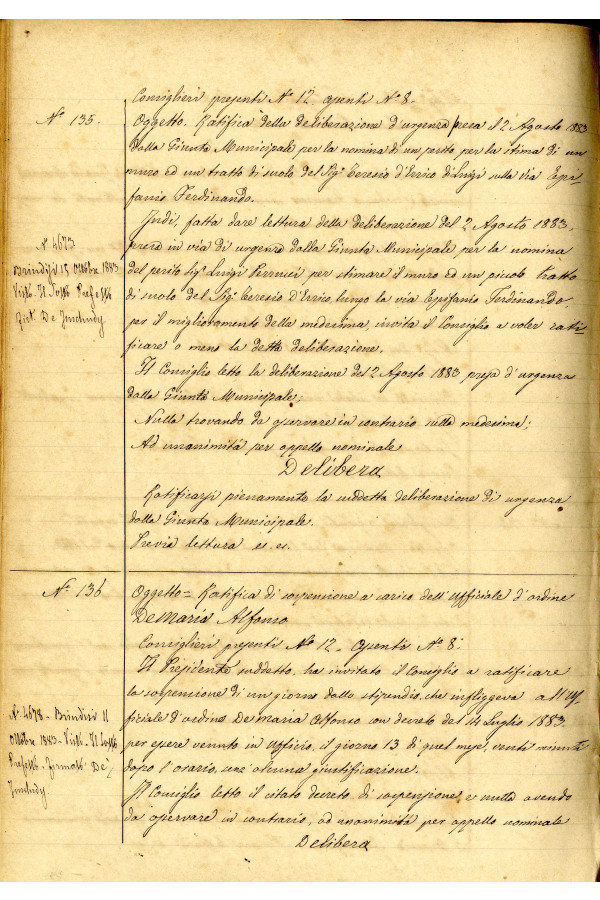 Consiglieri presenti N° 12. assenti N° 8.
N° 135.
Oggetto. Ratifica della deliberazione d'urgenza presa il 2 Agosto 1883
dalla Giunta Municipale per la nomina di un perito per la stima di un
muro ed un tratto di suolo del Sig.r Teresio d'Errico di Luigi sulla via Epi-
fanio Ferdinando.
Indi, fatta dare lettura della deliberazione del 2 Agosto 1883,
presa in via di urgenza dalla Giunta Municipale per la nomina
del perito Sig.r Luigi Perrucci per stimare il muro ed un piccolo tratto
di suolo del Sig.r Teresio d'Errico, lungo la via Epifanio Ferdinando,
per il miglioramento della medesima, invita il Consiglio a voler rati-
ficare o meno la detta deliberazione.
N. 4673
Brindisi 15 Ottobre 1883
Visto. Il Sotto Prefetto
De
Il Consiglio letto la deliberazione del 2 Agosto 1883, presa d'urgenza
dalla Giunta Municipale;
Nulla trovando da osservare in contrario sulla medesima;
Ad unanimità per appello nominale
Delibera
Ratificarsi pienamente la suddetta deliberazione di urgenza
dalla Giunta Municipale.
Previa lettura es. es.
N° 136
Oggetto = Ratifica di sospensione a carico dell'Ufficiale d'ordine
De Maria Alfonso
Consiglieri presenti N° 12. Assenti N° 8.
Il Presidente suddetto, ha invitato il Consiglio a ratificare
la sospensione di un giorno dallo stipendio, che infliggeva all'Uf-
ficiale d'ordine De Maria Alfonso con decreto del 14 Luglio 1883,
per essere venuto in Ufficio, il giorno 13 di quel mese, venti minuti
dopo l'orario, senz'alcuna giustificazione.
N. 4678 - Brindisi 11
Ottobre 1883 - Visto - Il Sotto
Prefetto. Firmato. De
Il Consiglio letto il citato decreto di sospensione e nulla avendo
da osservare in contrario, ad unanimità per appello nominale
Delibera